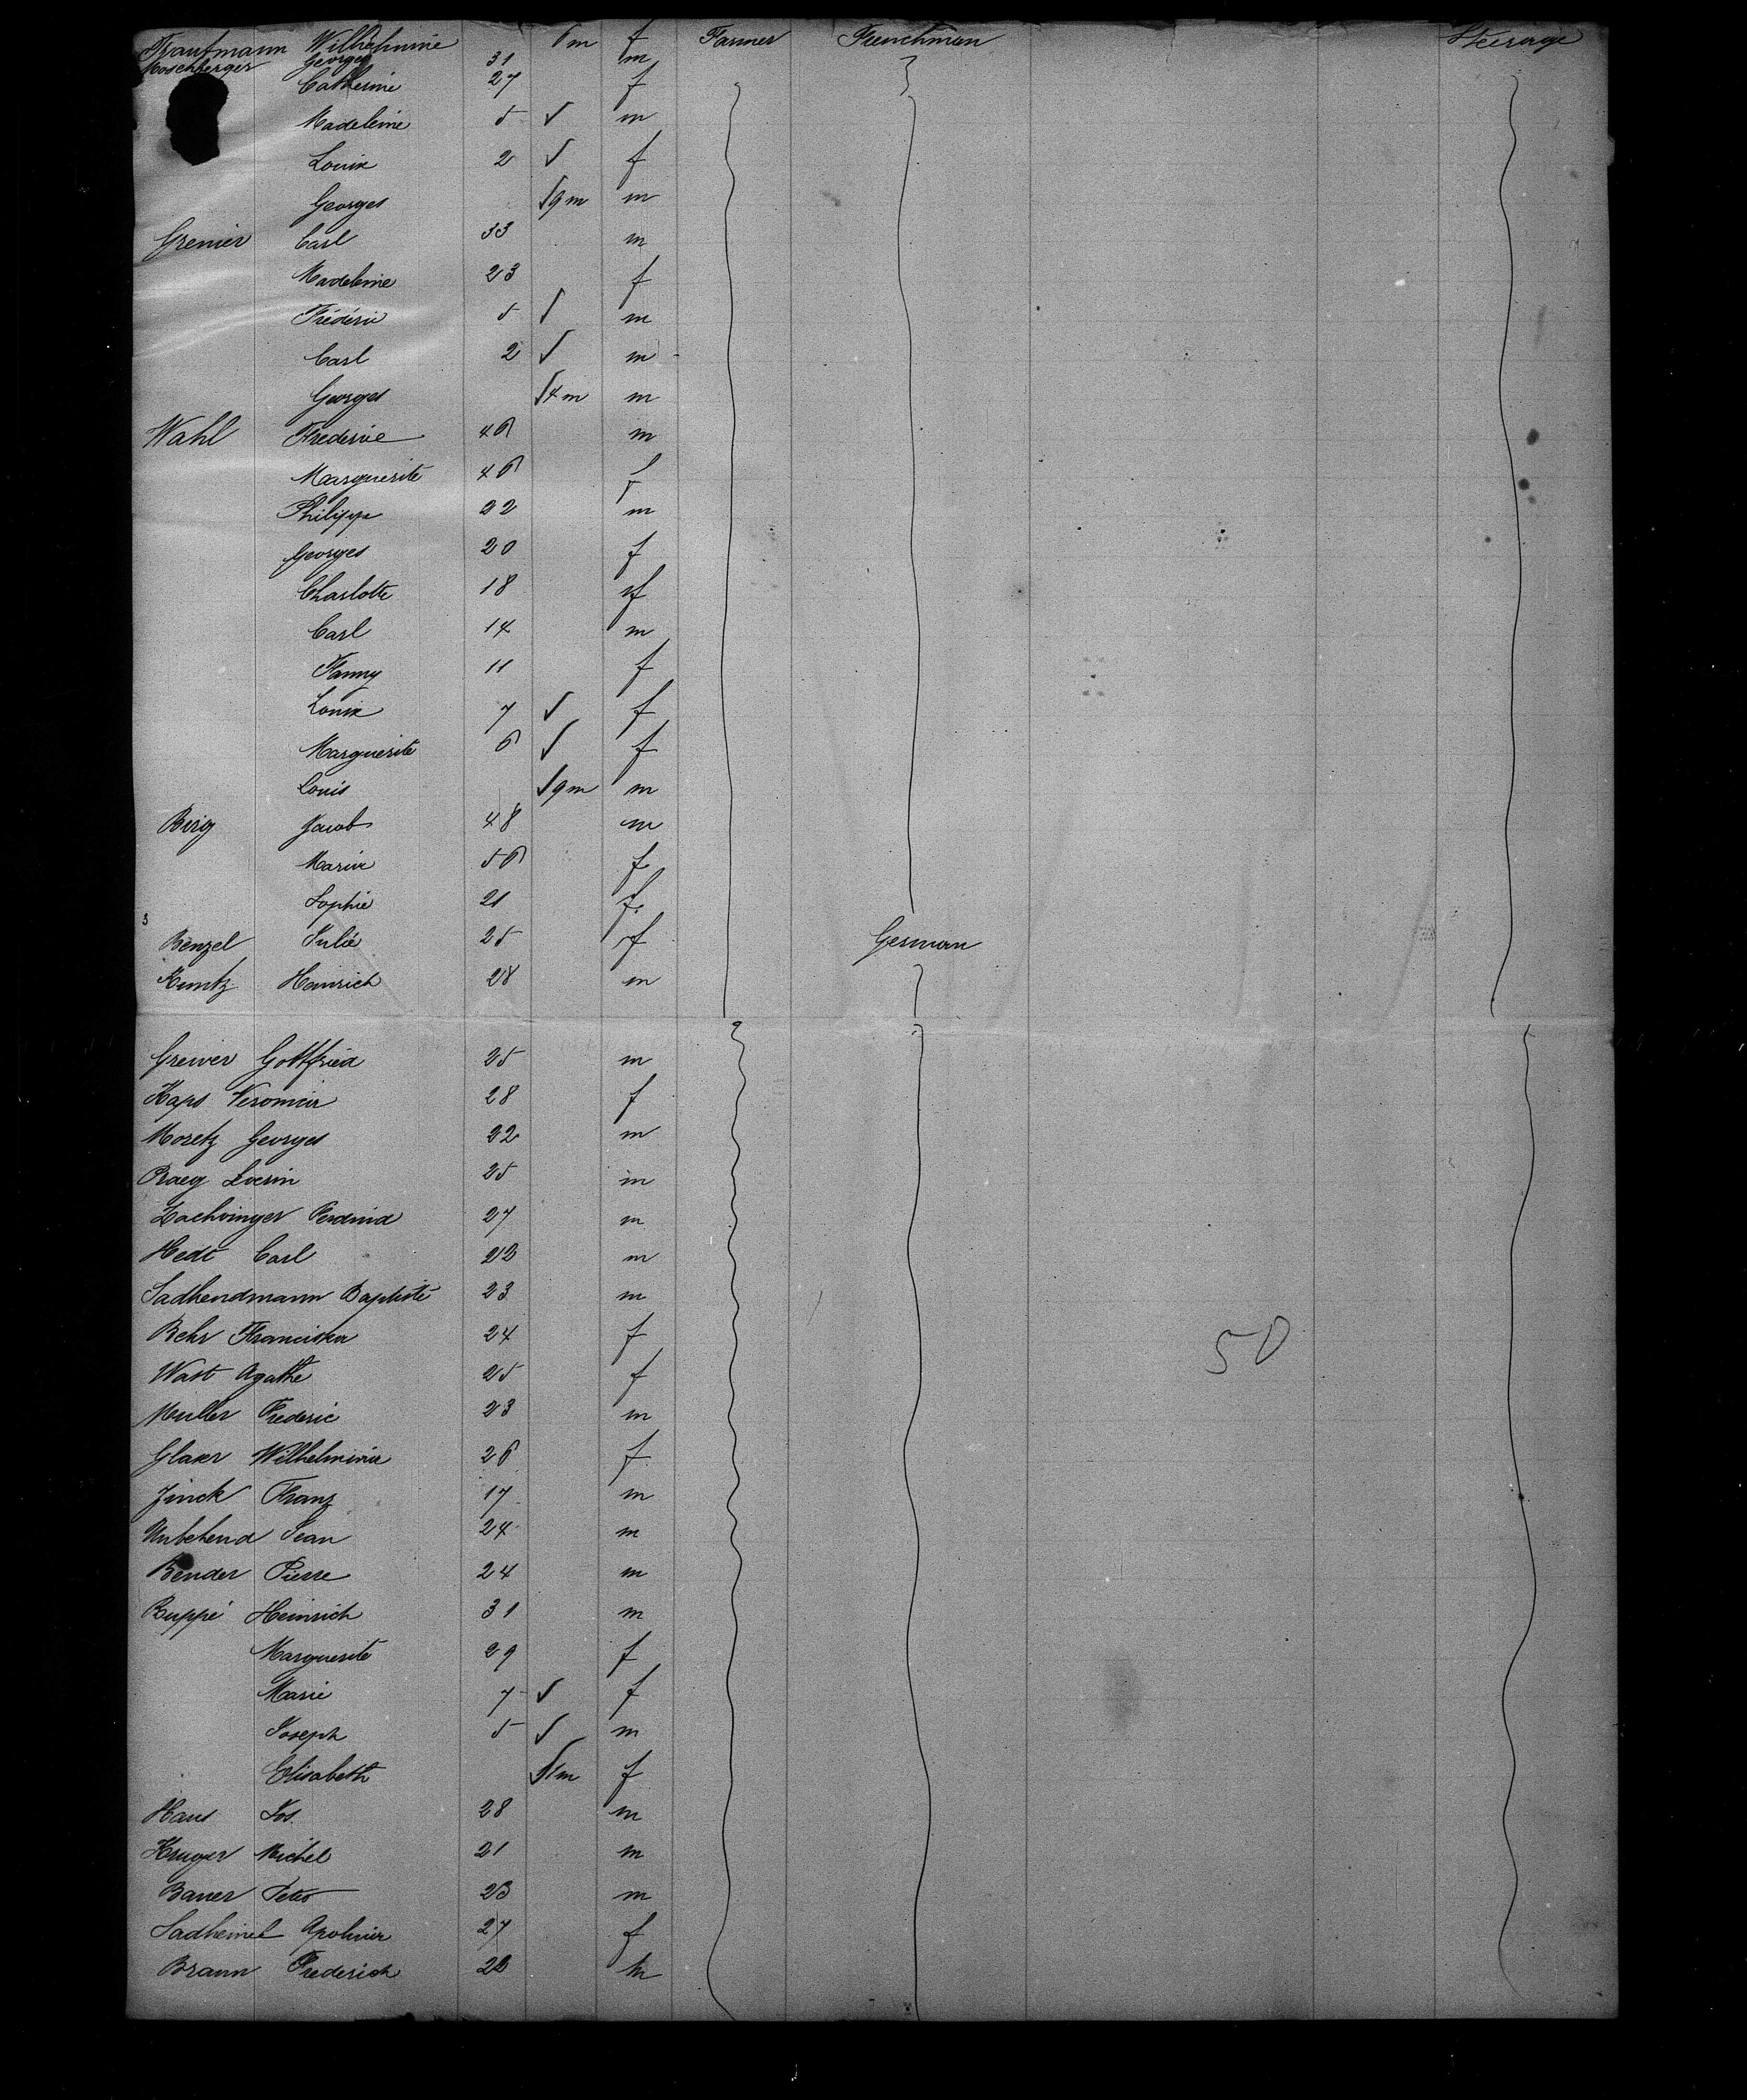 Traufmann Wilhelmine 6m f Farmer Frenchman Steerage
Moschberger Georges 31 m
Catherine 27 f
Madeleine 5 √ m
Louise 2 √ f
Georges √9m m
Grenier Carl 33 m
Madeleine 23 f
Frédéric 5 √ m
Carl 2 √ m
Georges √4m m
Wahl Frederic 46 m
Marguerite 46 f
Philipp 22 m
Georges 20 f
Charlotte 18 f
Carl 14 m
Fanny 11 f
Louise 7 √ f
Marguerite 6 √ f
Louis √9m m
Birg Jacob 48 m
Marie 56 f
Sophie 21 f
Benzel Julie 25 f German
Kuntz Heinrich 28 m
Greiver Gottfried 25 m
Kaps Veronica 28 f
Moretz Georges 22 m
Praeg 25 m
Lachvinger Ferdinid 27 m
Hedt Carl 22 m
Sadhendmann Baptiste 23 m
Behr Franciska 24 f
50
Wast Agathe 25 f
Muller Frederic 23 m
Glaser Wilhelmina 26 f
Jinck Franz 17 m
Unbehend Jean 24 m
Bender Pierre 24 m
Ruppé Heinrich 31 m
Marguerite 29 f
Marie 7 √ f
Joseph 5 √ m
Elisabeth √1m f
Haus Jos. 28 m
Kruger Michel 21 m
Bauer Peter 23 m
Sadheimel Apolinia 27 f
Braun Frederich 22 m